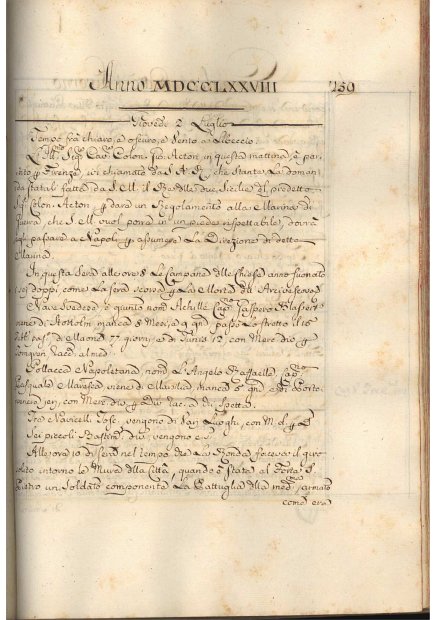 Anno MDCCLXXVIII 259
Giovedi 2 Luglio
Tempo frà chiaro, e oscuro, e Vento a Libeccio.
Il Sigr. Cavre. Colon. Acton in questa mattina è par-
tito Firenze, ivi chiamato da S. A. R. che stante La doman-
da fatta da S. M. il Rè delle due Sicilie del predetto
Sigr. Colon. Acton, dare un Regolamento alla Marina di
Guerra, che S. M. vuol porre in un piede rispettabile, dovrà
passare a Napoli assumere La Direzione di dette
Marina.
In questa Sera alle ore 8 Le Campane delle Chiese anno suonato
doppi come La Sera scorsa La Morte dell' Arcivescovo
Nave Svedese, è giunta nomta. Achille Capno. Gaspero
viene di Stokolm manca 8 Mesi, a passò Lo Stretto il 16
pass. da Maone 27 giorni, e di Tunis 12, con Merce div.
med.
Pollacca Napoletana nomta. L'Angelo Raffaelle, Capno.
Pasquale viene di Marsilia manca 6 gni. e di Porto-
venere con Merce div. Duo tac. da Spetta.
Tre Navicelli Tosc. vengono di Van. Luoghi, con M. d.
Sei piccoli Bastim. div. vengono
Alle ore 10 di Sera nel tempo che La Ronda faceva il giro
solito intorno le Mura della Città, quando è stata al Forte S.
Pietro un Soldato componente La Pattuglia della med. armato
come era